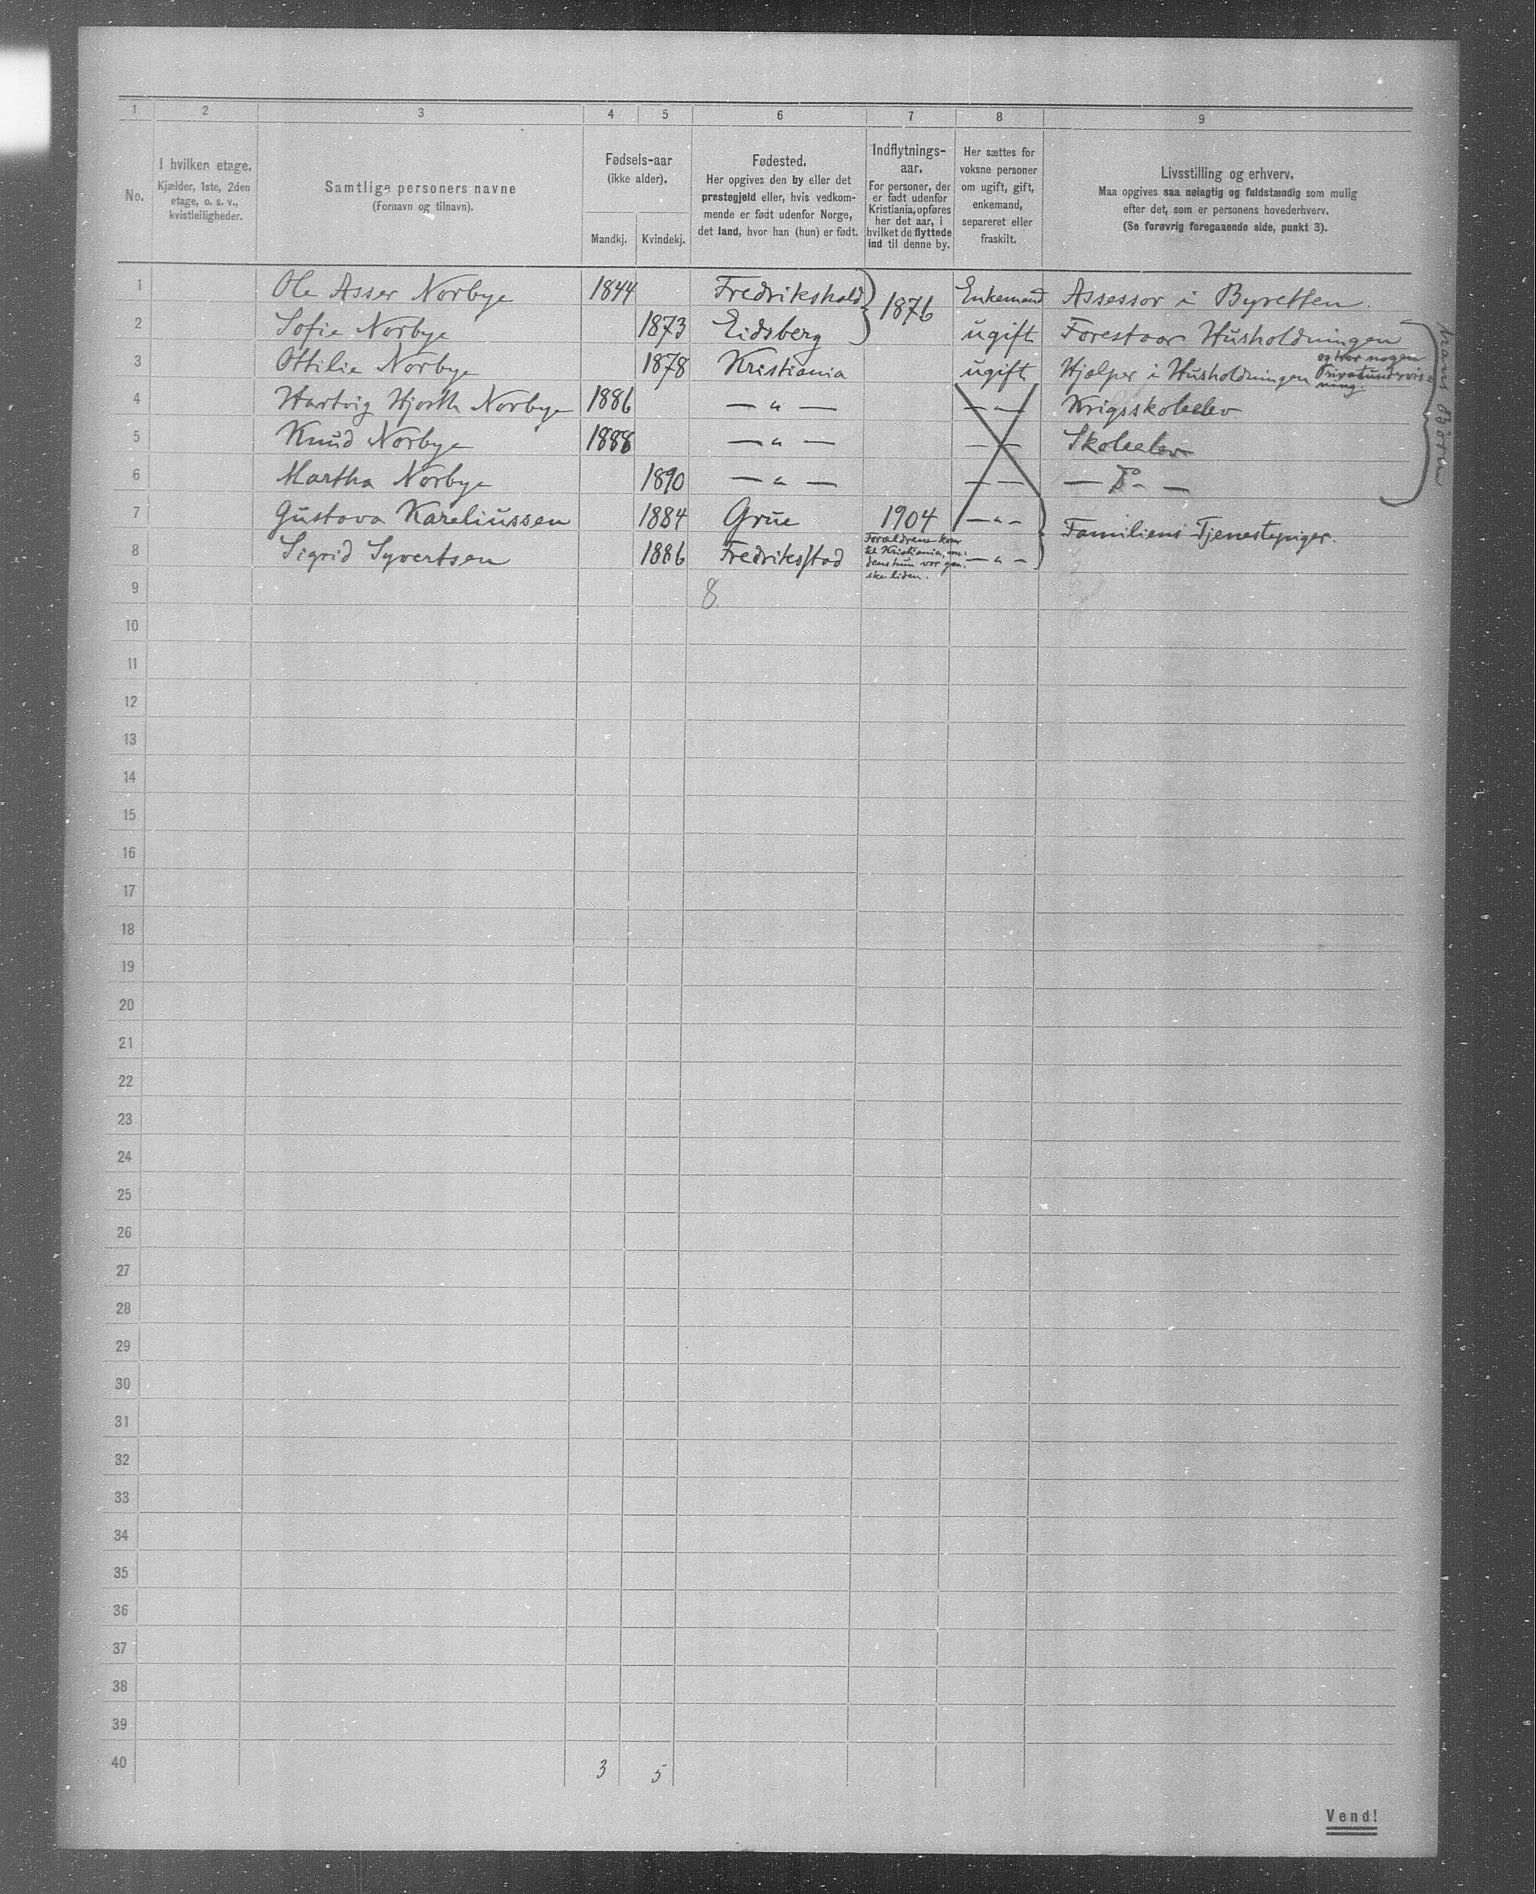 1 2 3 4 5 6 7 8 9
No.
I hvilken etage.
Kjælder, 1ste, 2den
etage, o. s. v.,
kvistleiligheder.
Samtlige personers navne
(Fornavn og tilnavn).
Fødsels-aar
(ikke alder).
Mandkj. Kvindekj.
Fødested.
Her opgives den by eller det
prestegjeld eller, hvis vedkom-
mende er født udenfor Norge,
det land, hvor han (hun) er født.
Indflytnings-
aar.
For personer, der
er født udenfor
Kristiania, opføres
her det aar, i
hvilket de flyttede
ind til denne by.
Her sættes for
voksne personer
om ugift, gift,
enkemand,
separeret eller
fraskilt.
Livsstilling og erhverv.
Maa opgives saa nøiagtig og fuldstændig som mulig
efter det, som er personens hovederhverv.
(Se forøvrig foregaaende side, punkt 3).
1 Ole Asser Norbye 1844 Fredrikshald 1876 Enkemand Assessor i Byretten.
2 Sofie Norbye 1873 Eidsberg ugift Forestaar Husholdningen
3 Ottilie Norbye 1878 Kristiania ugift Hjælper i Husholdningen og har nogen
Privatundervis-
ning.
4 Hartvig Hjorth Norbye 1886 — " — — " — Krigsskoleelev
5 Knud Norbye 1888 — " — — — Skoleelev
6 Martha Norbye 1890 — " — — — — Do —
hans Børn
7 Gustava Kareliussen 1884 Grue 1904 — " — Familiens Tjenestepiger.
8 Sigrid Syvertsen 1886 Fredriksstad Forældrene kom
til Kristiania, me-
dens hun var gan-
ske liden. — " —
9 8.
10
11
12
13
14
15
16
17
18
19
20
21
22
23
24
25
26
27
28
29
30
31
32
33
34
35
36
37
38
39
40 3 5
Vend!